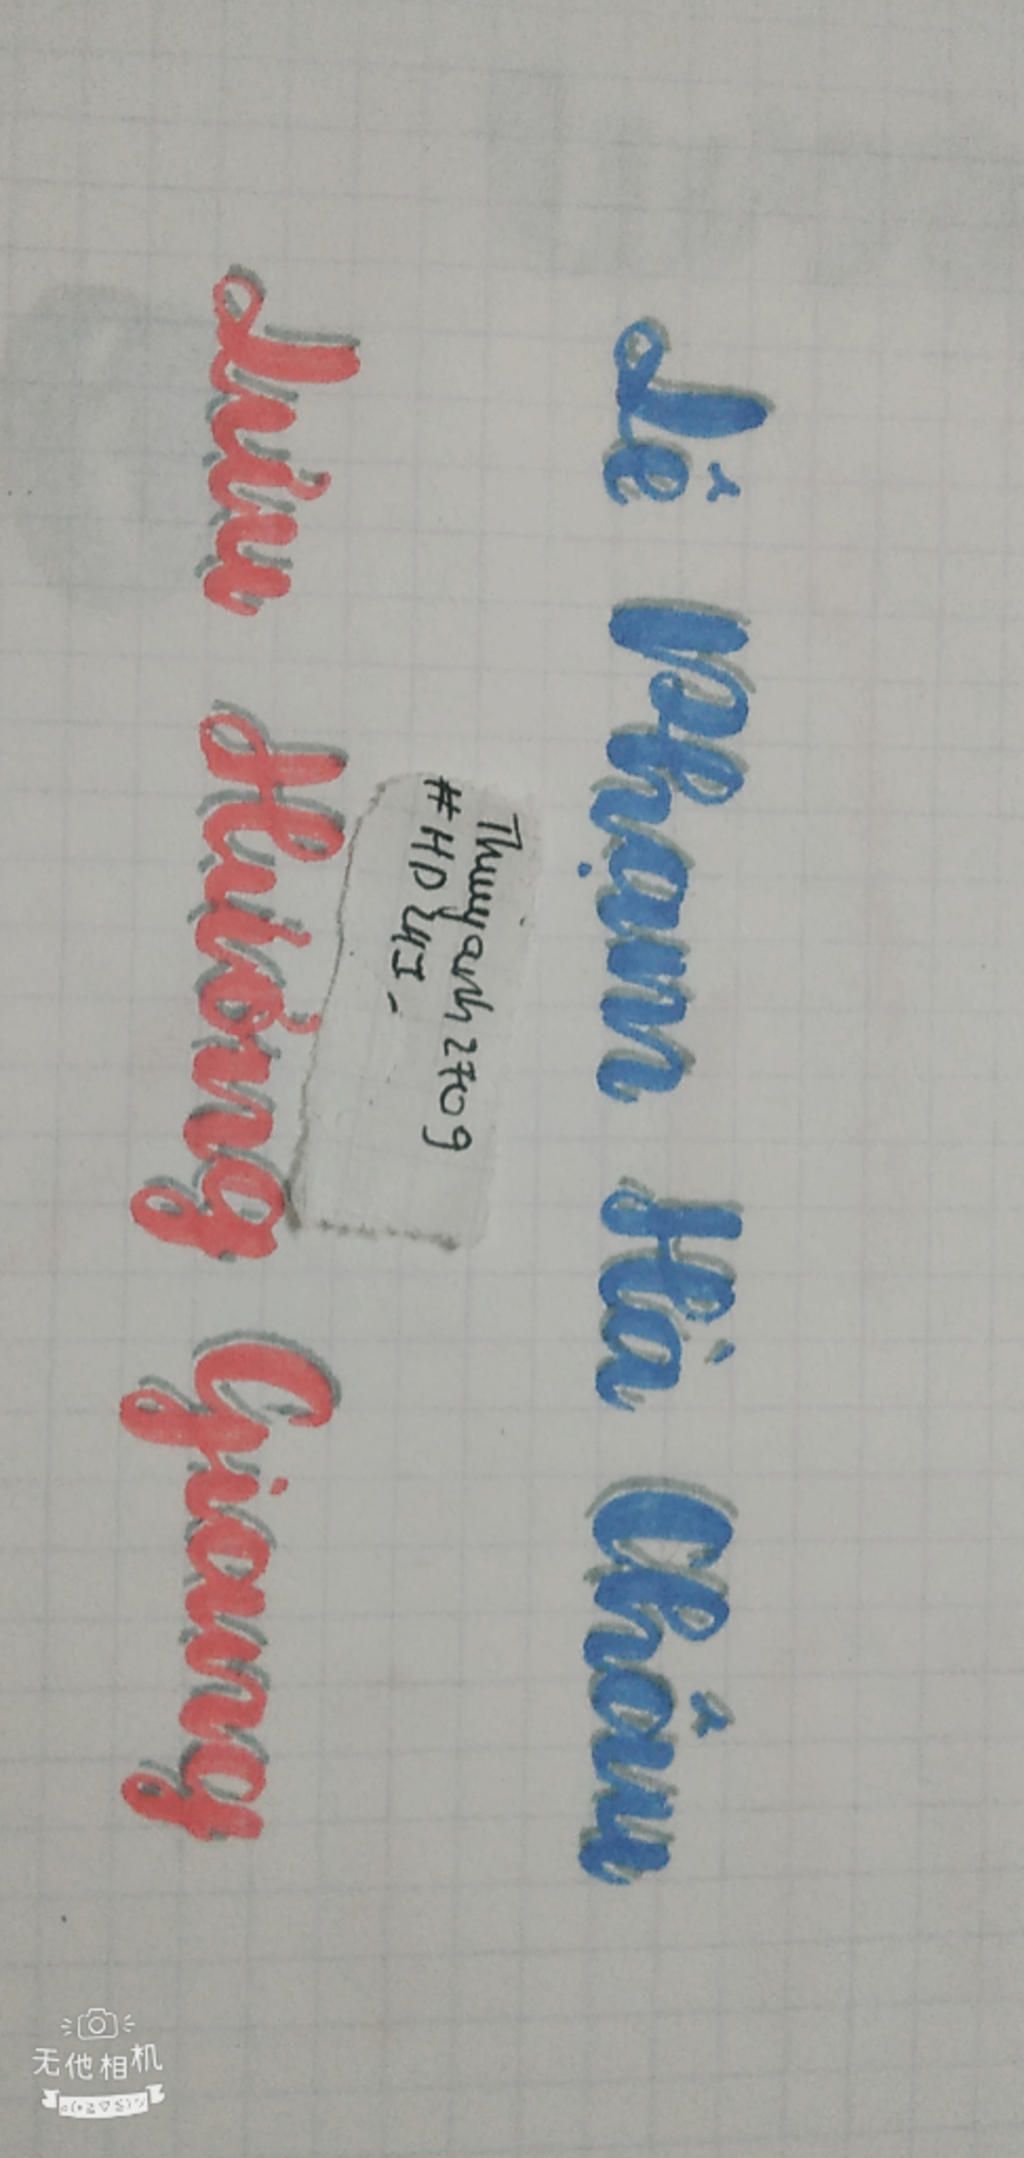 Lê Phạm Hà Châu
Thuyanh2709
#HD247-
Lưu Hương Giang
无他相机